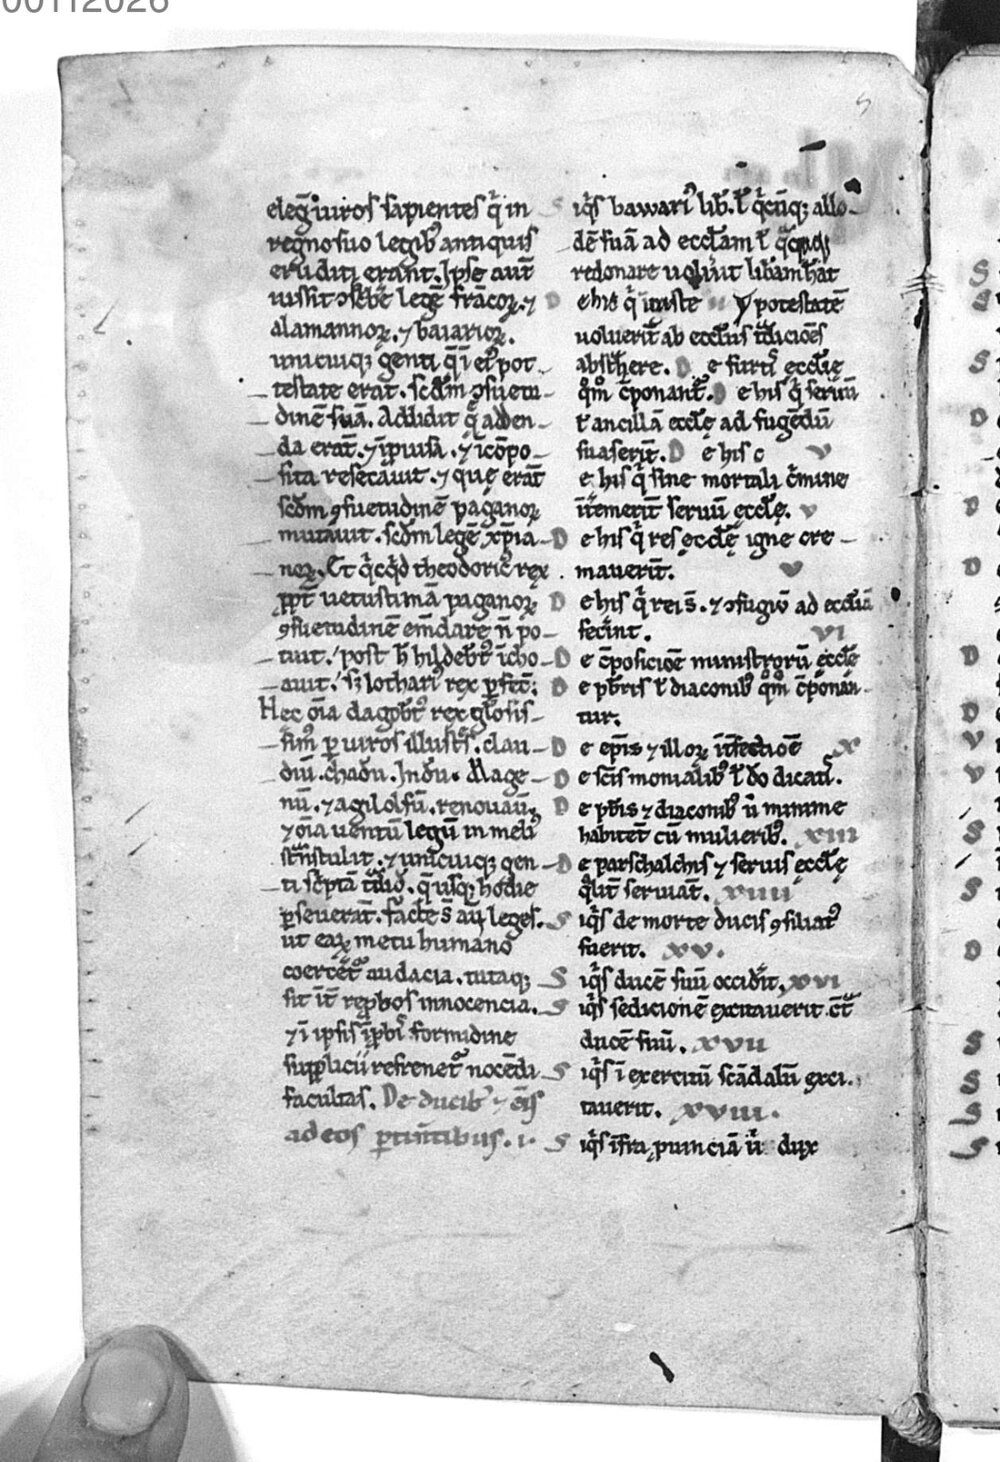 00112026
5
elegit uiros sapientes q̇ in
regno suo legib; antiquis
eruditi erant. Ipse aut̄
iussit ↄscb̄e legē francoꝝ. ⁊
alamannoꝝ. ⁊ baiarioꝝ.
unicuiq; genti q̄ ī eiꝰ pot
testate erat. scd̄m ↄsuetu
dinē suā. Addidit q̄ adden
da erāt. ⁊ īpuisa. ⁊ īcōpo
sita resecauit. ⁊ que erāt
scd̄m ꝯsuetudinē paganoꝝ
mutauit. scd̄m legē xp̄ia
noꝝ. Et q̇cq̇d theodoricꝰ rex
ꝓpt̄ uetustimā paganoꝝ
ꝯsuetudinē em̄dare n̄ po
tuit. post h̄ hildebt̄ꝰ īcho
auit. sꝫ lothariꝰ rex ꝑfec̄.
Hec oīa dagobt̄ꝰ rex gl̄osis
simꝰ ꝑ uiros illustꝭ. clau
diū. chadū. Indū. Mage
nū. ⁊ agilolfū. renouau̅
⁊ oīa ueterū legū in meliꝰ
st̄nstulit. ⁊ unicuiq; gen
ti sc̄ptā t̄did. q̄ usq; hodie
ꝑseuerāt. facte s̄ aū leges.
ut eaꝝ metu humano
coercet̄ audacia. tutaq;
sit īt̄ reꝓbos innocencia.
⁊ ī ipsis īꝓbis formidine
supplicii refrenet̄ nocēdi
facultas. De ducib; ⁊ eis
ad eos ꝑtin̄tibus. i.
S iq̇s bawariꝰ lib. l̄ q̇cūq; allo
dē suā ad eccl̄am l̄
redonare uoluit lib̄am hāt
D e his q̇ iniuste potestatē
uoluerit ab eccl̄iis t̄dicioēs
abst̄here. D e furtꝭ eccl̄ie
q̊m c̄ponant̄. D e his q̇ seruū
l̄ ancillā eccl̄e ad fugēdū
suaserit̄. D e his c v
e his q̇ sine mortali c̄mine
īt̄emerit̄ seruū eccl̄e. v
D e his q̇ res eccl̄e igne cre
mauerit̄. v
D e his q̇ rei s̄. ⁊ ↄfugiūt ad eccl̄iā
fecerint. vi
D e c̄posicioē ministrorū eccl̄e
D e pb̄ris l̄ diaconib; q̊m c̄ponan
tur.
D e ep̄is ⁊ illoꝝ īt̄fectioē x
D e sc̄is monialib; l̄ do dicatꝭ.
D e pb̄ris ⁊ diaconib; n̄ minime
habitēt cū mulierib;. xiii
D e parschalchis ⁊ seruis eccl̄e
q̄lit̄ seruiāt. xiiii
S iq̇s de morte ducis ꝯsiliatꝰ
fuerit. xv.
S iq̇s ducē suū occidit. xvi
S iq̇s sedicionē excitauerit ct̄
ducē suū. xvii
S iq̇s ī exercitū scādalū exci
tauerit. xviii.
S iq̇s īfra puinciā dux